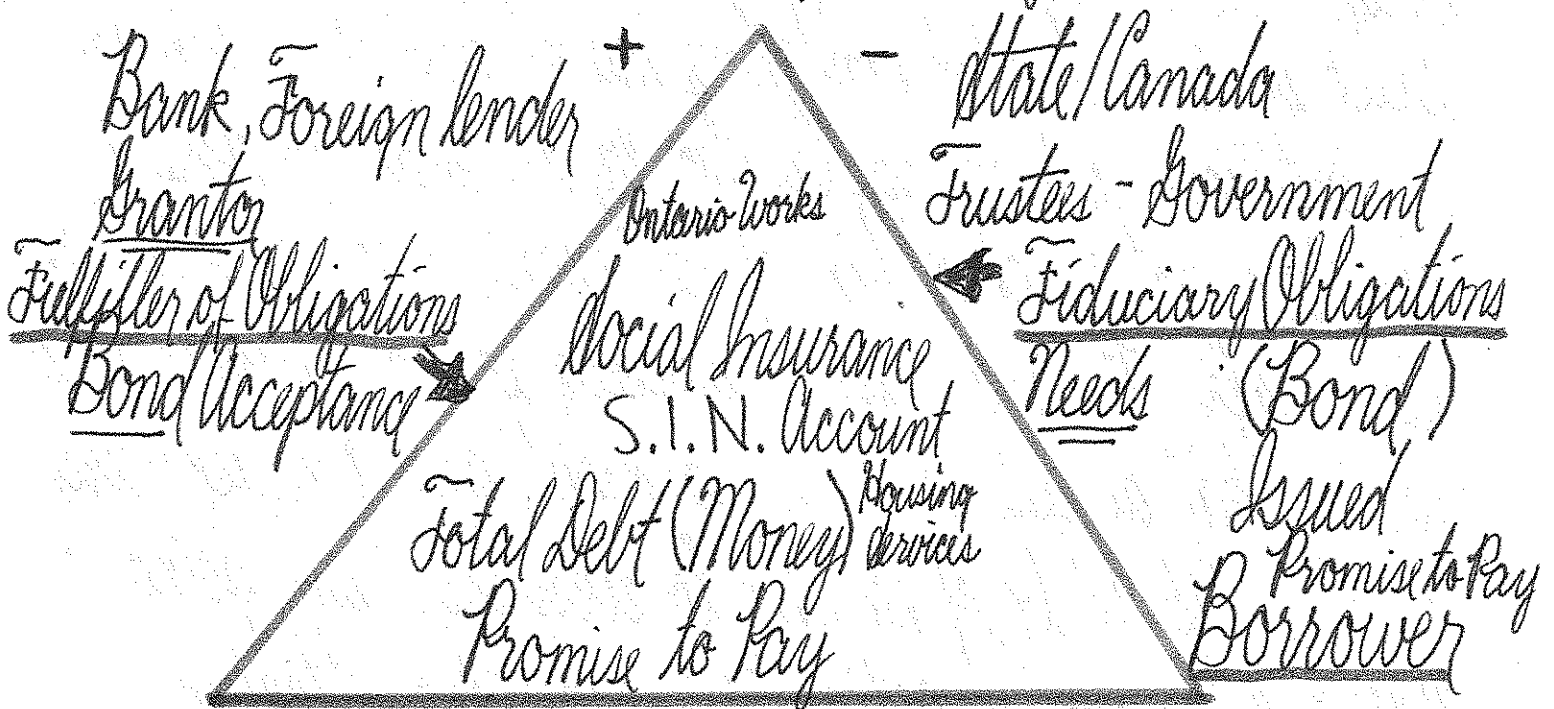 Bank, Foreign lender
Grantor
Fulfiller of Obligations
Bond Acceptance
+
-
Ontario Works
Social Insurance
S.I.N. Account
Total Debt (Money)
Housing
Services
Promise to Pay
State/Canada
Trustees - Government
Fiduciary Obligations
Needs (Bond)
Issued
Promise to Pay
Borrower